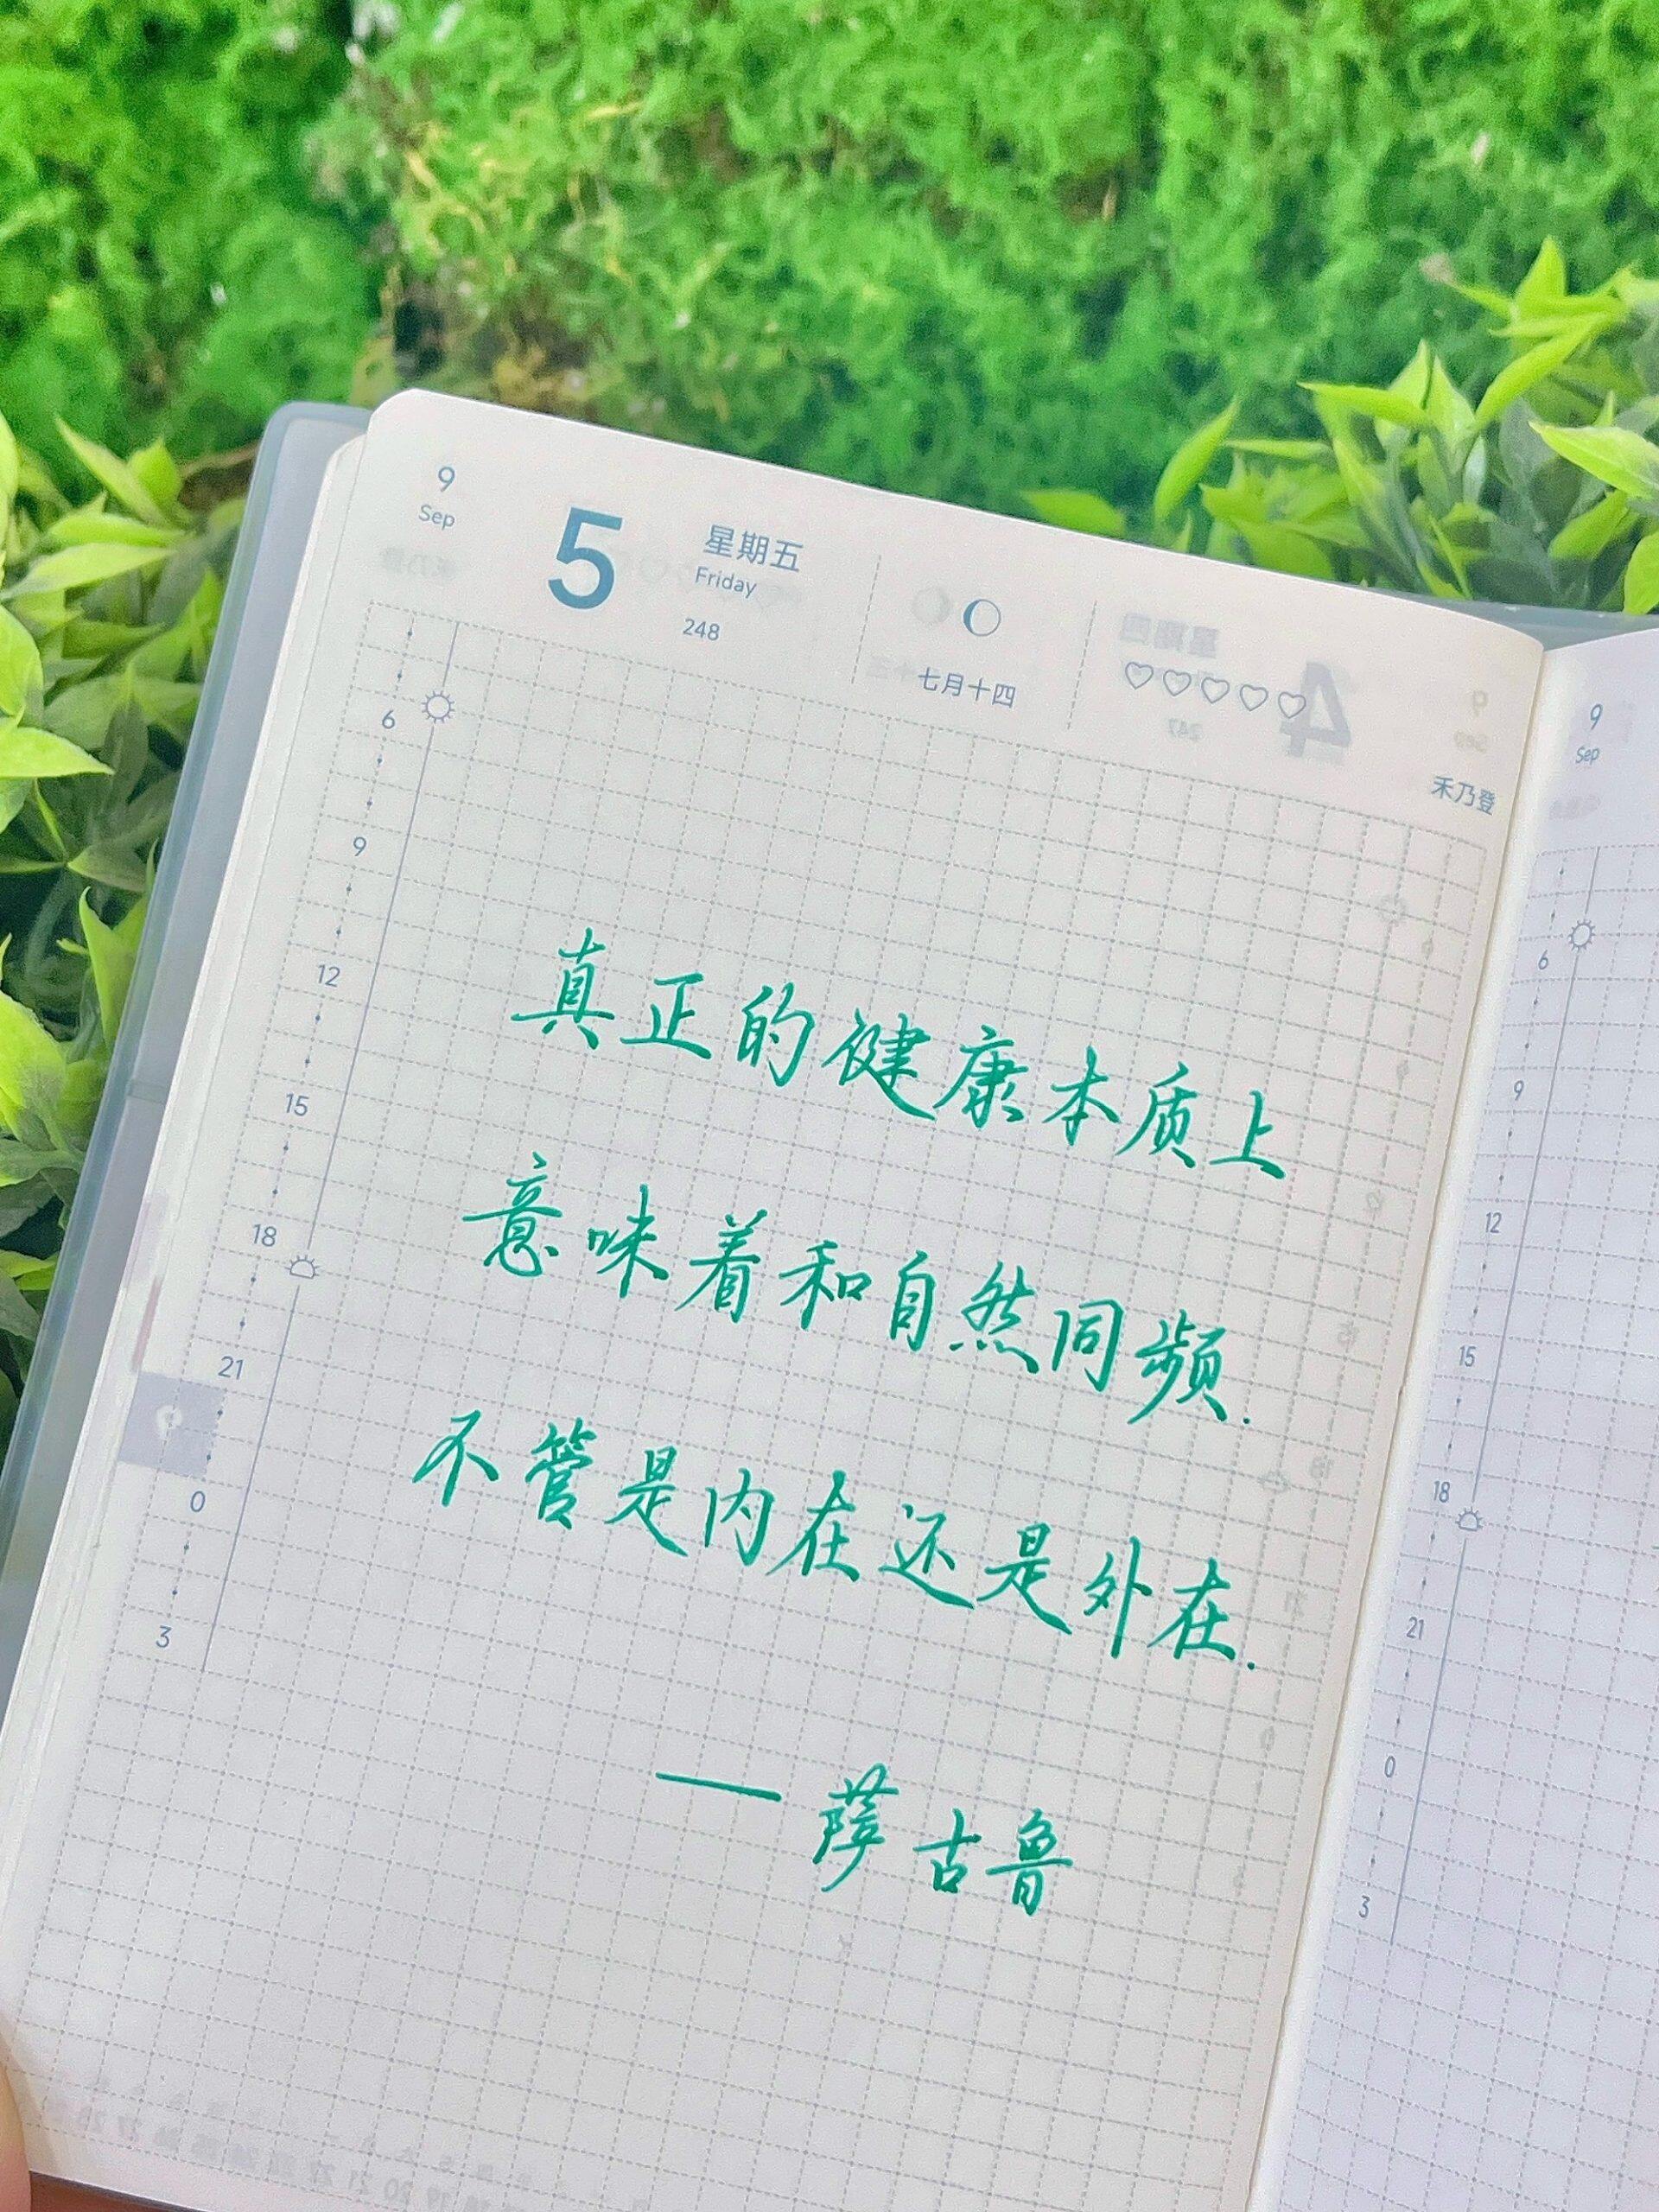 9
Sep
5
星期五
Friday
248
七月十四
禾乃登
6
9
12
15
18
21
0
3
真正的健康本质上
意味着和自然同频.
不管是内在还是外在.
— 萨古鲁
9
Sep
6
9
12
15
18
21
0
3